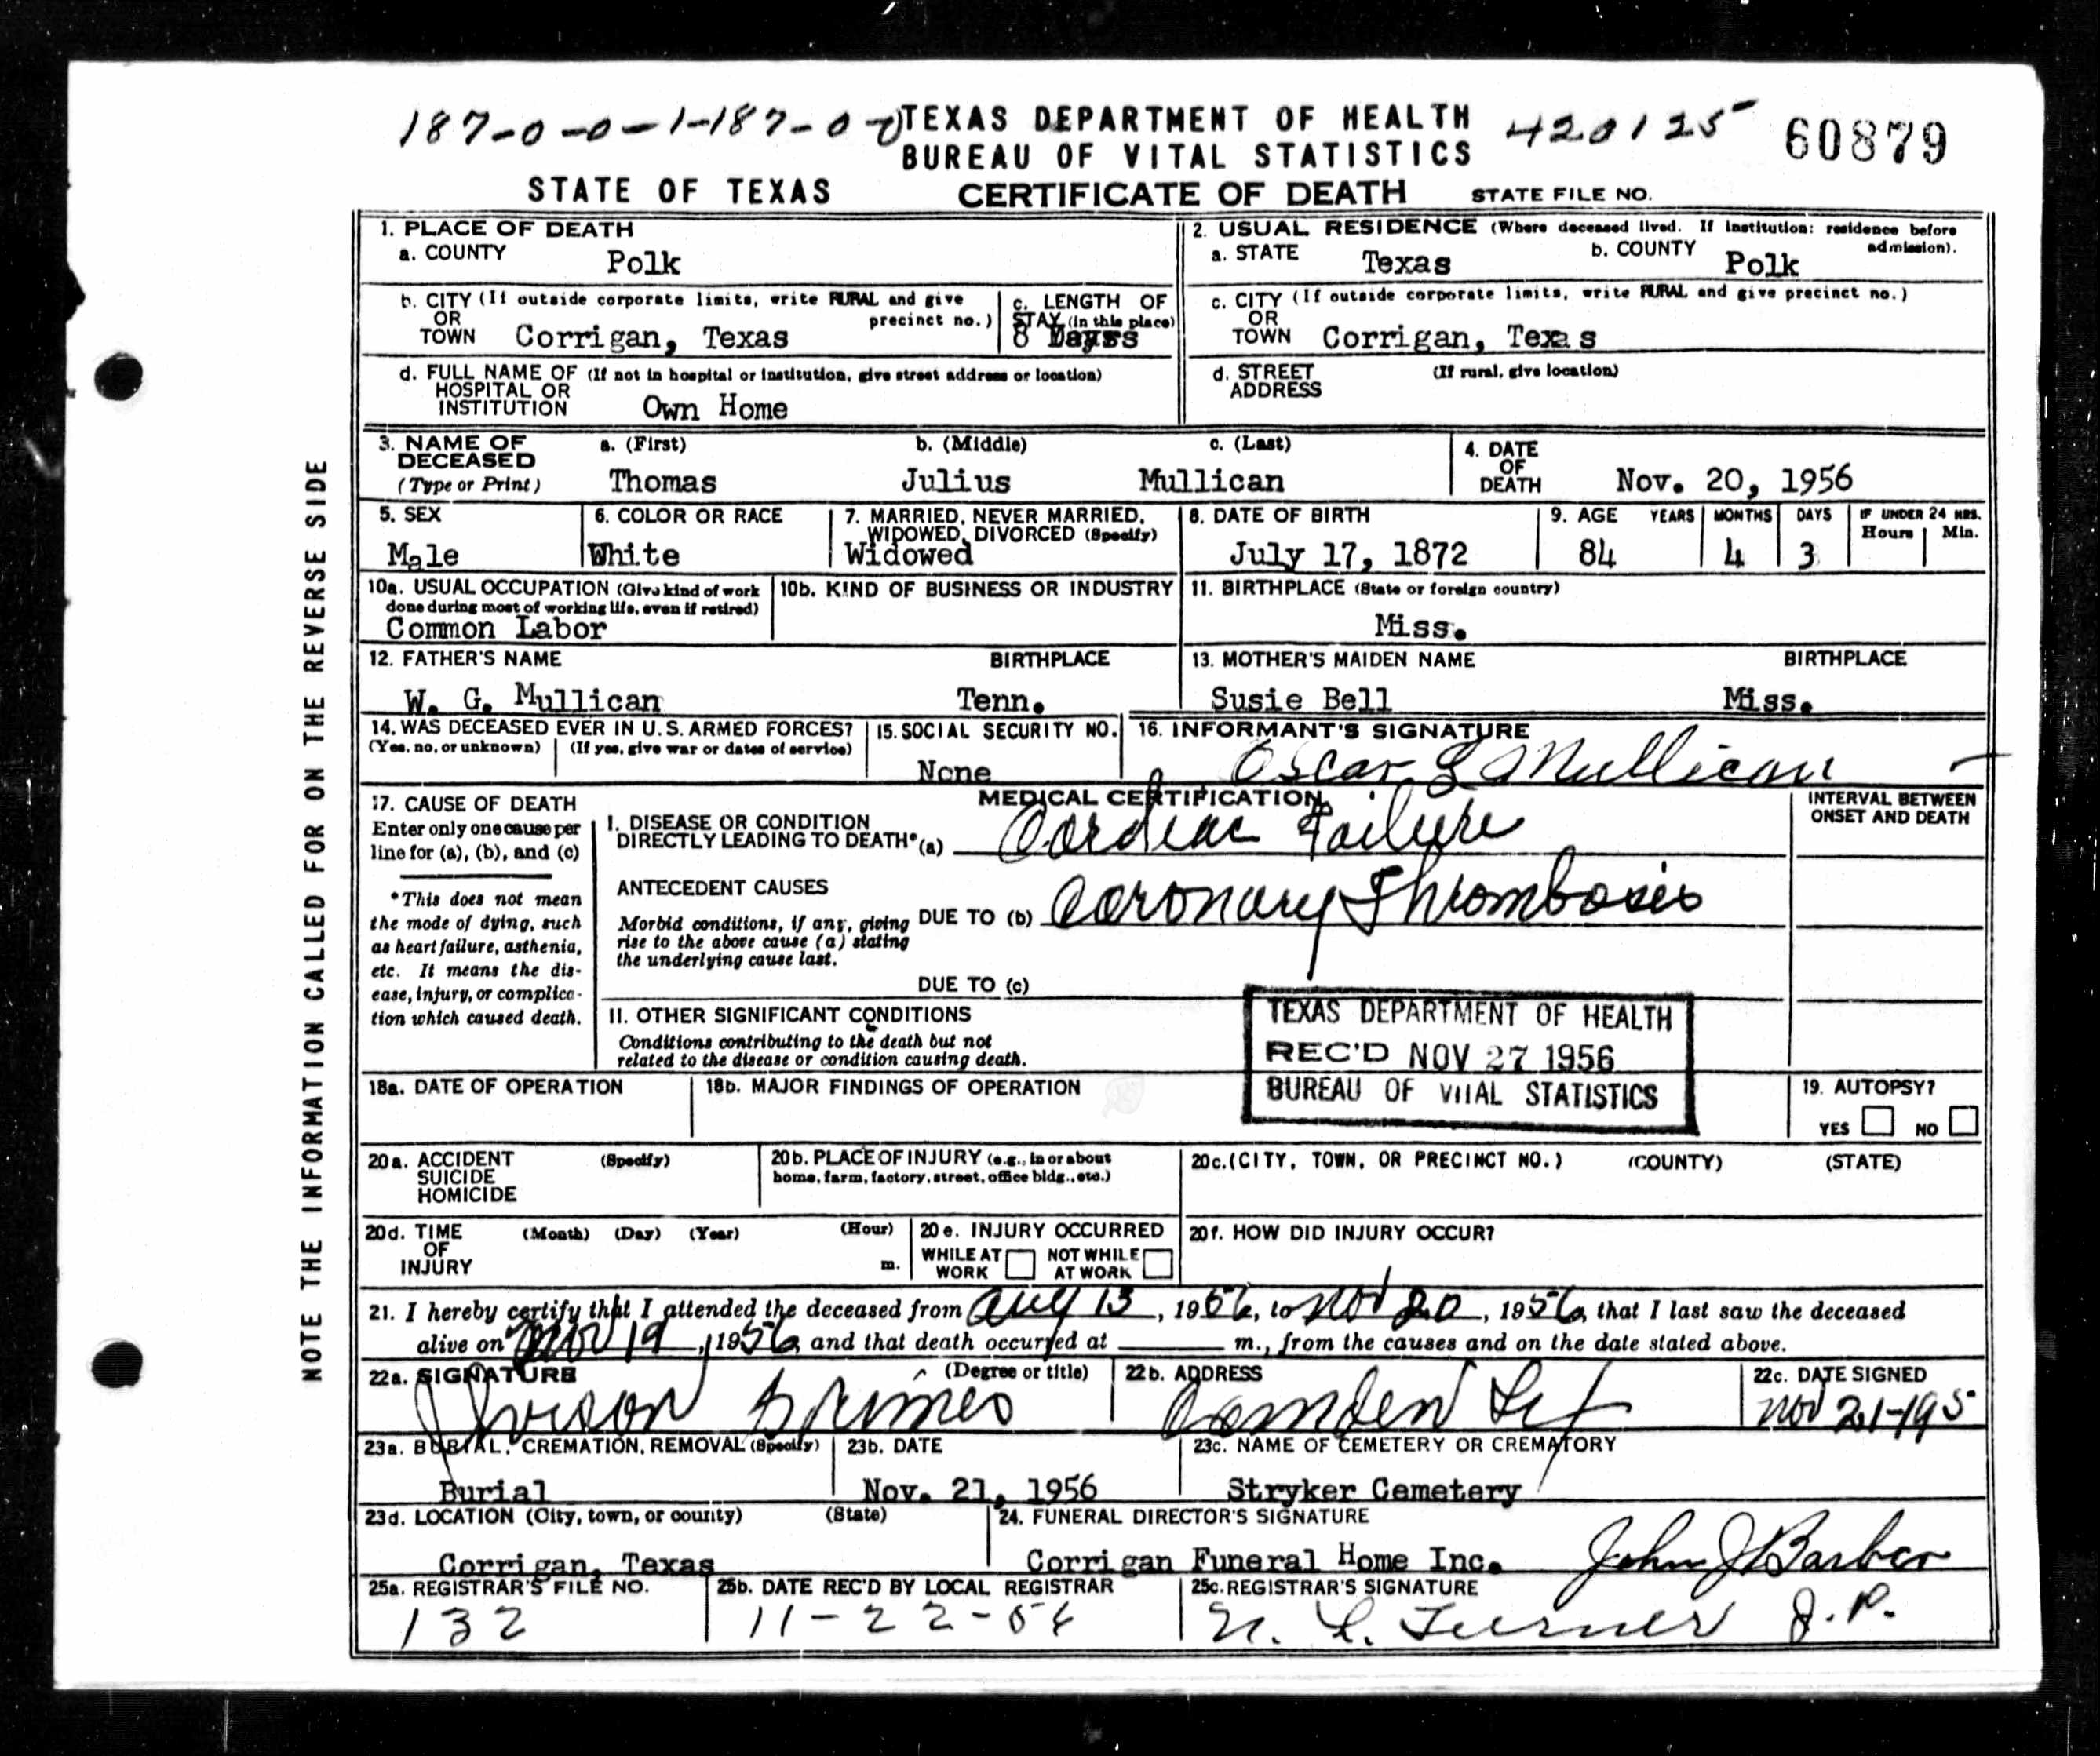 187-0-0-1-187-0-0
TEXAS DEPARTMENT OF HEALTH
420125
60879
BUREAU OF VITAL STATISTICS
STATE OF TEXAS
CERTIFICATE OF DEATH
STATE FILE NO.
NOTE THE INFORMATION CALLED FOR ON THE REVERSE SIDE
1. PLACE OF DEATH
a. COUNTY
Polk
2. USUAL RESIDENCE (Where deceased lived. If institution: residence before admission).
a. STATE
Texas
b. COUNTY
Polk
b. CITY (If outside corporate limits, write RURAL and give precinct no.)
OR
TOWN
Corrigan, Texas
c. LENGTH OF
STAY (in this place)
8
c. CITY (If outside corporate limits, write RURAL and give precinct no.)
OR
TOWN
Corrigan, Texas
d. FULL NAME OF (If not in hospital or institution, give street address or location)
HOSPITAL OR
INSTITUTION
Own Home
d. STREET
ADDRESS
(If rural, give location)
3. NAME OF
DECEASED
(Type or Print)
a. (First)
Thomas
b. (Middle)
Julius
c. (Last)
Mullican
4. DATE
OF
DEATH
Nov. 20, 1956
5. SEX
Male
6. COLOR OR RACE
White
7. MARRIED, NEVER MARRIED,
WIDOWED, DIVORCED (Specify)
Widowed
8. DATE OF BIRTH
July 17, 1872
9. AGE
YEARS
84
MONTHS
4
DAYS
3
IF UNDER 24 HRS.
Hours
Min.
10a. USUAL OCCUPATION (Give kind of work
done during most of working life, even if retired)
Common Labor
10b. KIND OF BUSINESS OR INDUSTRY
11. BIRTHPLACE (State or foreign country)
Miss.
12. FATHER'S NAME
BIRTHPLACE
W. G. Mullican
Tenn.
13. MOTHER'S MAIDEN NAME
BIRTHPLACE
Susie Bell
Miss.
14. WAS DECEASED EVER IN U.S. ARMED FORCES?
(Yes, no, or unknown)
(If yes, give war or dates of service)
15. SOCIAL SECURITY NO.
None
16. INFORMANT'S SIGNATURE
Oscar L Mullican
17. CAUSE OF DEATH
Enter only one cause per
line for (a), (b), and (c)
*This does not mean
the mode of dying, such
as heart failure, asthenia,
etc. It means the dis-
ease, injury, or complica-
tion which caused death.
MEDICAL CERTIFICATION
INTERVAL BETWEEN
ONSET AND DEATH
I. DISEASE OR CONDITION
DIRECTLY LEADING TO DEATH* (a)
Cardiac Failure
ANTECEDENT CAUSES
Morbid conditions, if any, giving
rise to the above cause (a) stating
the underlying cause last.
DUE TO (b)
Coronary Thrombosis
DUE TO (c)
II. OTHER SIGNIFICANT CONDITIONS
Conditions contributing to the death but not
related to the disease or condition causing death.
TEXAS DEPARTMENT OF HEALTH
REC'D NOV 27 1956
BUREAU OF VITAL STATISTICS
18a. DATE OF OPERATION
18b. MAJOR FINDINGS OF OPERATION
19. AUTOPSY?
YES
NO
20a. ACCIDENT
SUICIDE
HOMICIDE
(Specify)
20b. PLACE OF INJURY (e.g., in or about
home, farm, factory, street, office bldg., etc.)
20c. (CITY, TOWN, OR PRECINCT NO.)
(COUNTY)
(STATE)
20d. TIME
OF
INJURY
(Month)
(Day)
(Year)
(Hour)
m.
20e. INJURY OCCURRED
WHILE AT
WORK
NOT WHILE
AT WORK
20f. HOW DID INJURY OCCUR?
21. I hereby certify that I attended the deceased from Aug 13, 1956, to Nov 20, 1956, that I last saw the deceased
alive on Nov 19, 1956, and that death occurred at m., from the causes and on the date stated above.
22a. SIGNATURE
(Degree or title)
Grimes
22b. ADDRESS
Camden
22c. DATE SIGNED
Nov 21-195
23a. BURIAL, CREMATION, REMOVAL (Specify)
Burial
23b. DATE
Nov. 21, 1956
23c. NAME OF CEMETERY OR CREMATORY
Stryker Cemetery
23d. LOCATION (City, town, or county)
(State)
Corrigan, Texas
24. FUNERAL DIRECTOR'S SIGNATURE
Corrigan Funeral Home Inc.
John J Barber
25a. REGISTRAR'S FILE NO.
132
25b. DATE REC'D BY LOCAL REGISTRAR
11-22-56
25c. REGISTRAR'S SIGNATURE
N. L. Turner J.P.